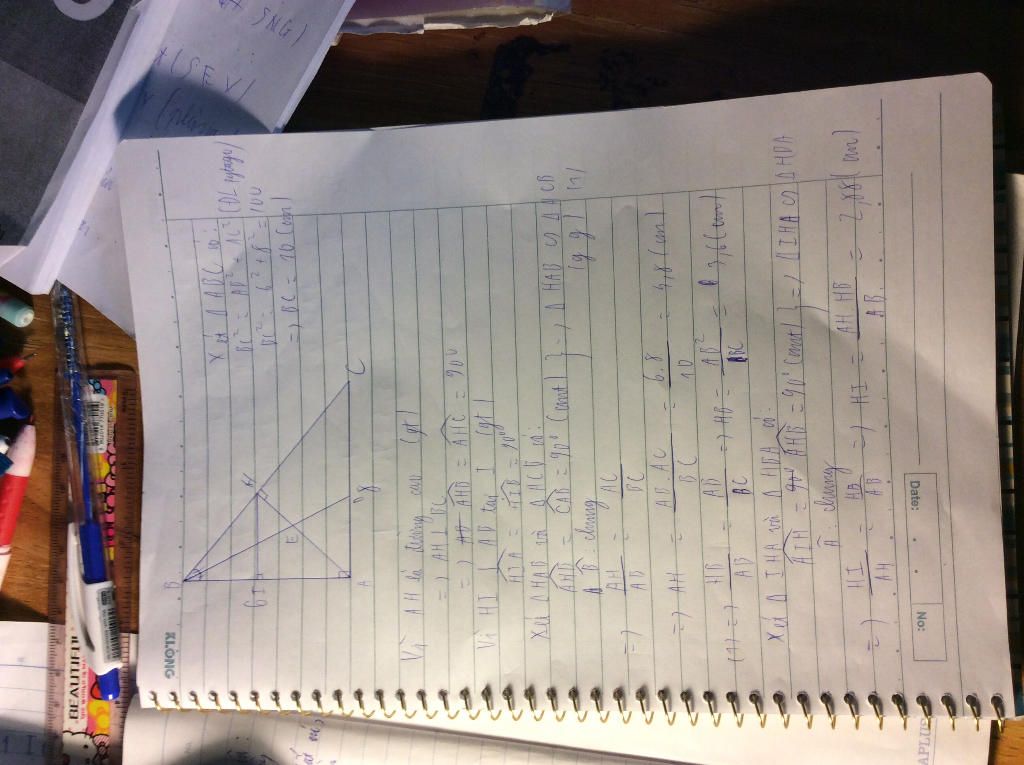 KLONG
B
Xét Δ ABC có:
BC² = AB² + AC² (ĐL pytago)
BC² = 6² + 8² = 100
=> BC = 10 (cm)
6 I H
E
A D 8 C
Vì AH là đường cao (gt)
=> AH ⊥ BC
=> AHB = AHC = 90°
Vì HI ⊥ AB tại I (gt)
HIA = HIB = 90°
Xét Δ HAB và Δ ACB có:
AHB = CAB = 90° (cmt) } => Δ HAB ∽ Δ ACB
B : chung (g g) (1)
=> AH/AB = AC/BC
=> AH = AB.AC/BC = 6.8/10 = 4,8 (cm)
(1) => HB/AB = AB/BC => HB = AB²/BC = 3,6 (cm)
Xét Δ IHA và Δ HBA có:
AIH = 90° AHB = 90° (cmt) } => Δ IHA ∽ Δ HBA
A : chung
=> HI/AH = HB/AB => HI = AH.HB/AB = 2,88 (cm)
No:
Date:
BEAUTIFUL